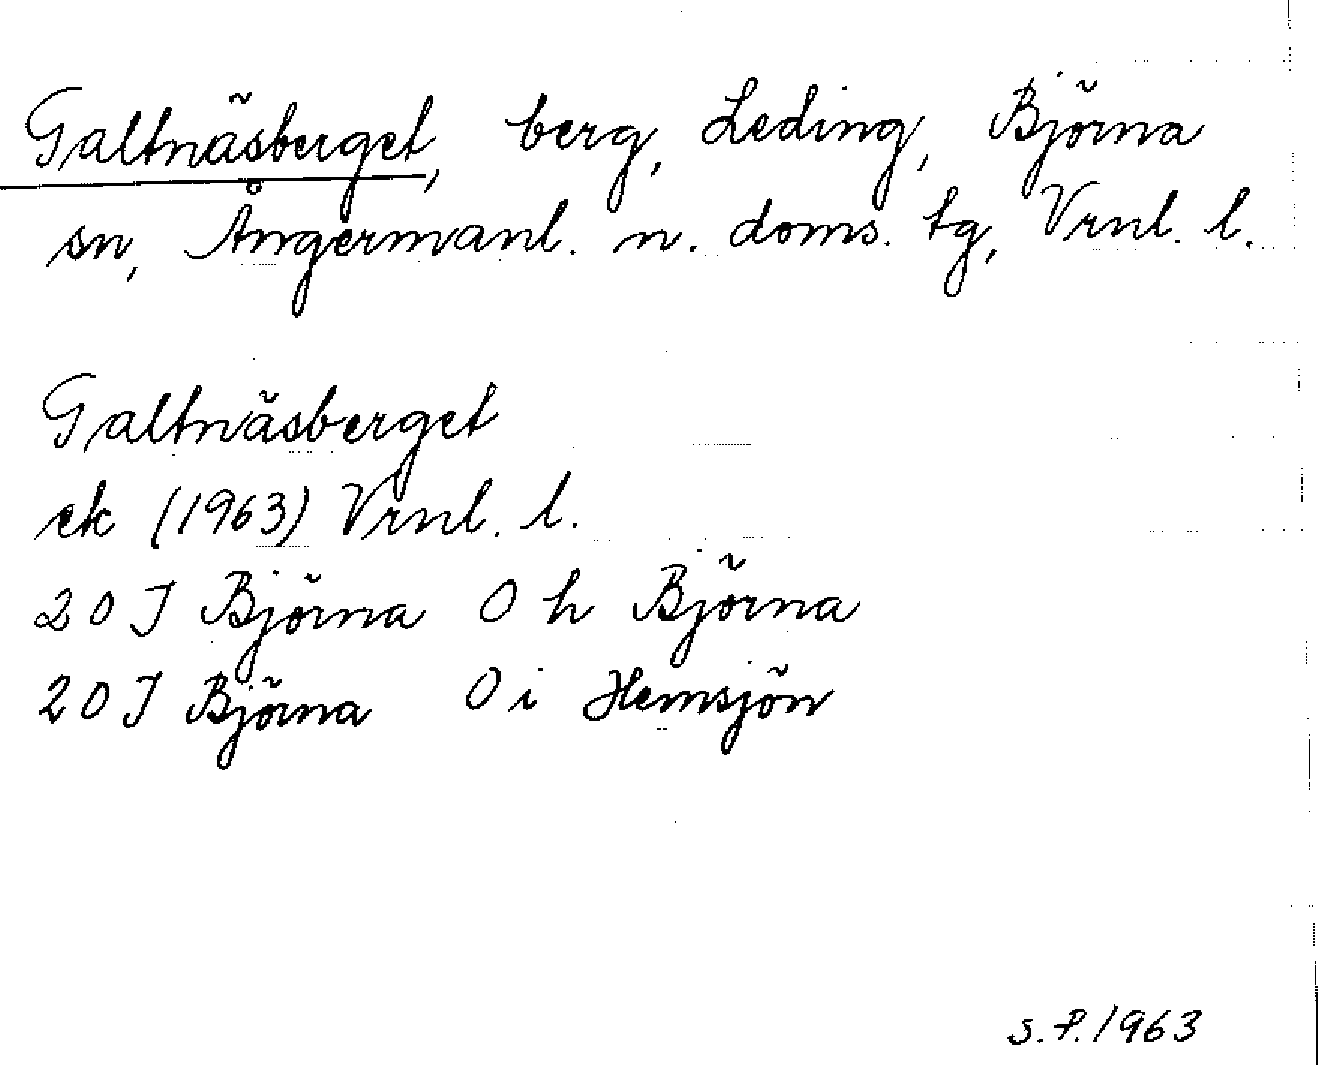 Galtnäsberget, berg, Leding, Björna
sn, Ångermanl. n. doms. tg, Vrnl. l.
Galtnäsberget
ek (1963) Vrnl. l.
20 J Björna 0 h Björna
20 J Björna 0 i Hemsjön
S.P. 1963